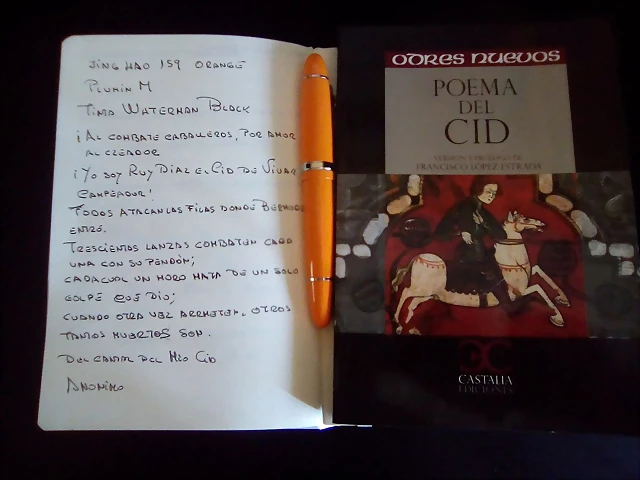 JING HAO 159 ORANGE
PLUMIN M
TINTA WATERMAN BLACK
¡AL COMBATE CABALLEROS, POR AMOR
AL CREADOR
¡YO SOY RUY DIAZ EL CID DE VIVAR
CAMPEADOR!
TODOS ATACAN LAS FILAS DONDE BERMUDO
ENTRÓ.
TRESCIENTAS LANZAS COMBATEN CADA
UNA CON SU PENDÓN;
CADA CUAL UN MORO MATA DE UN SOLO
GOLPE QUE DIO;
CUANDO OTRA VEZ ARREMETEN, OTROS
TANTOS MUERTOS SON.
DEL CANTAR DEL MIO CID
ANONIMO
ODRES NUEVOS
POEMA
DEL
CID
VERSIÓN Y PRÓLOGO DE
FRANCISCO LÓPEZ ESTRADA
CASTALIA
EDICIONES